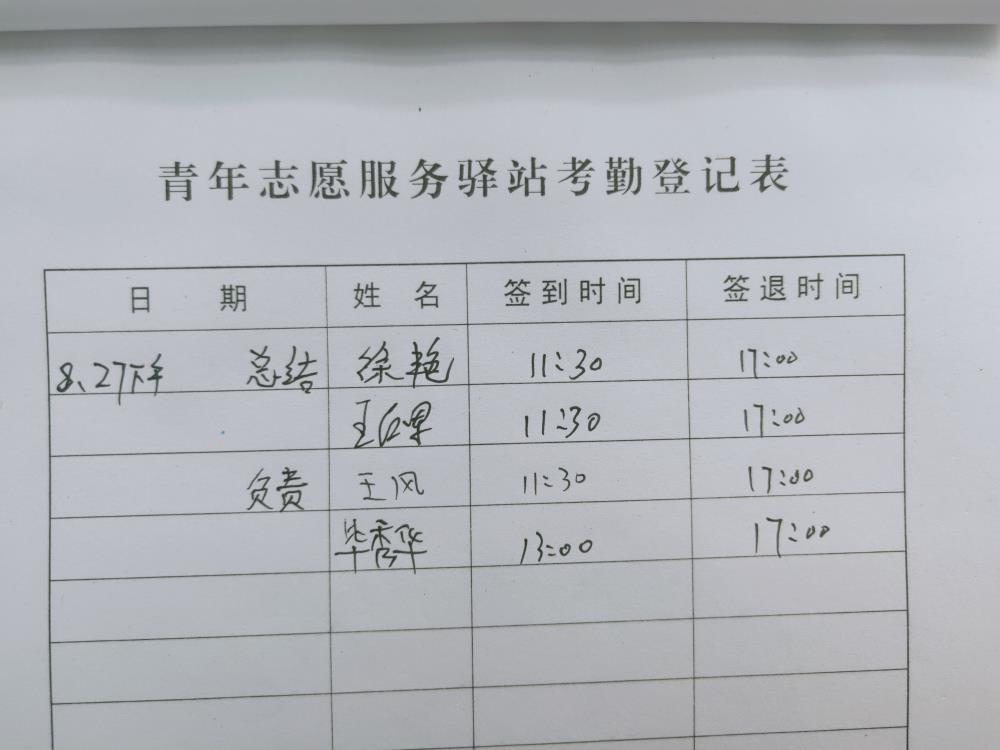 青年志愿服务驿站考勤登记表
日 期 姓 名 签到时间 签退时间
8、27下午 总结 徐艳 11:30 17:00
王 11:30 17:00
负责 王风 11:30 17:00
毕秀华 13:00 17:00